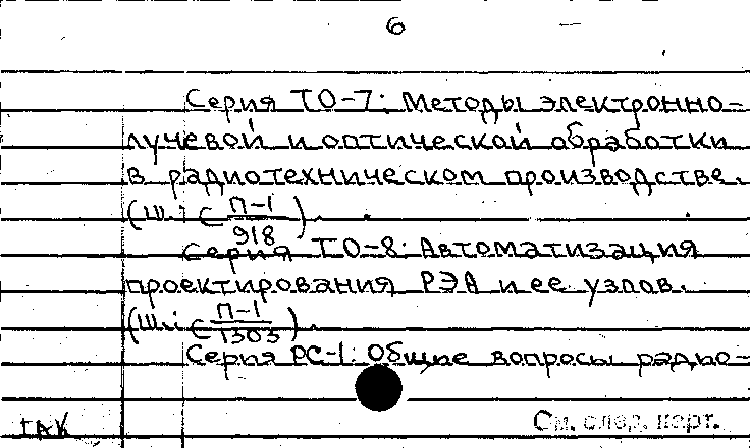 6
Серия ТО-7: Методы электронно-
лучевой и оптической обработки
в радиотехническом производстве.
(Ш.: С П-1/918).
Серия ТО-8: Автоматизация
проектирования РЭА и ее узлов.
(Ш.: С П-1/1303).
Серия РС-1: Общие вопросы радио-
ГАК
См. след. карт.